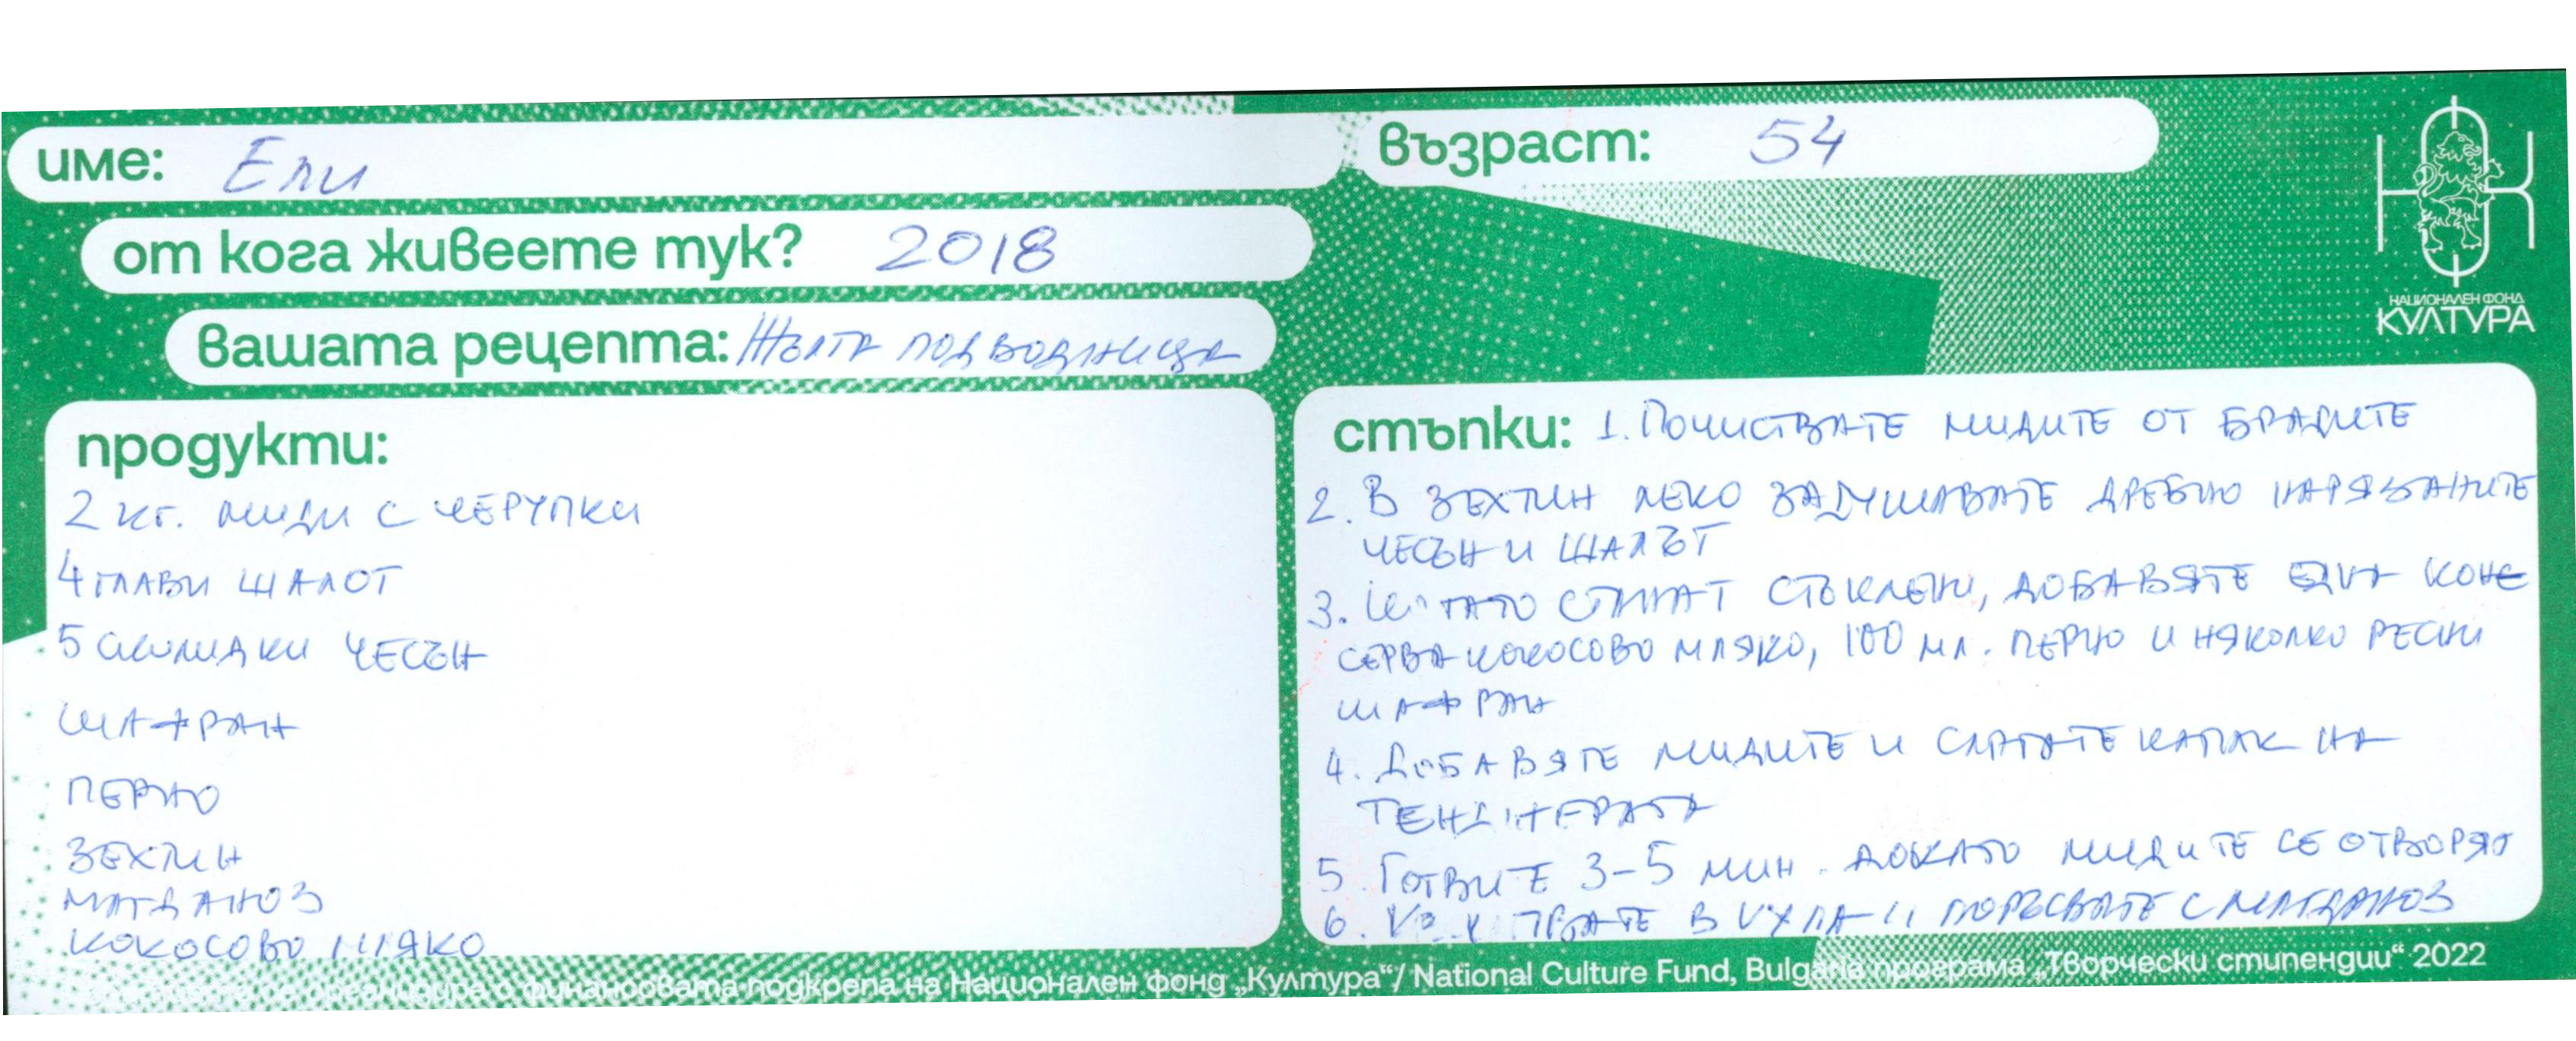 име: Ели
възраст: 54
от кога живеете тук? 2018
НАЦИОНАЛЕН ФОНД
КУЛТУРА
вашата рецепта: Жълта подводница
продукти:
2 кг. миди с черупки
4 глави шалот
5 скилидки чесън
шафран
перно
зехтин
магданоз
кокосово мляко
стъпки: 1. Почиствате мидите от брадите
2. В зехтин леко задушавате дребно нарязаните
чесън и шалът
3. Когато станат стъклени, добавяте една коне
серва кокосово мляко, 100 мл. перно и няколко ресни
шафран
4. Добавяте мидите и слагате капак на
тенджерата
5. Готвите 3-5 мин. докато мидите се отворят
6. в купа и поръсвате с магданоз
финансовата подкрепа на Национален фонд „Култура“/ National Culture Fund, Bulgaria програма „Творчески стипендии“ 2022